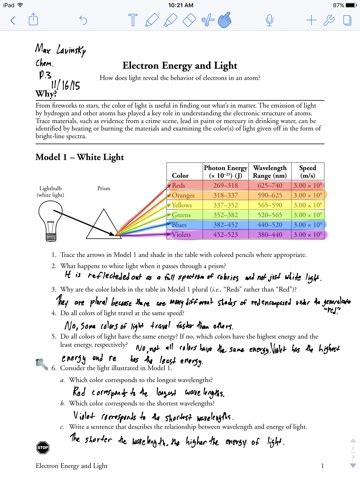 iPad
10:21 AM
87%
Max Lavinsky
Chem.
P.3
11/16/15
Electron Energy and Light
How does light reveal the behavior of electrons in an atom?
Why?
From fireworks to stars, the color of light is useful in finding out what's in matter. The emission of light
by hydrogen and other atoms has played a key role in understanding the electronic structure of atoms.
Trace materials, such as evidence from a crime scene, lead in paint or mercury in drinking water, can be
identified by heating or burning the materials and examining the color(s) of light given off in the form of
bright-line spectra.
Model 1 – White Light
Lightbulb
(white light)
Prism
Color Photon Energy (× 10⁻²¹) (J) Wavelength Range (nm) Speed (m/s)
Reds 269–318 625–740 3.00 × 10⁸
Oranges 318–337 590–625 3.00 × 10⁸
Yellows 337–352 565–590 3.00 × 10⁸
Greens 352–382 520–565 3.00 × 10⁸
Blues 382–452 440–520 3.00 × 10⁸
Violets 452–523 380–440 3.00 × 10⁸
1. Trace the arrows in Model 1 and shade in the table with colored pencils where appropriate.
2. What happens to white light when it passes through a prism?
It is out as a full spectrum of and not just white light.
3. Why are the color labels in the table in Model 1 plural (i.e., "Reds" rather than "Red")?
They are plural because there are many different shades of red under the "red"
4. Do all colors of light travel at the same speed?
No, some colors of light travel faster than others.
5. Do all colors of light have the same energy? If no, which colors have the highest energy and the
least energy, respectively?
No, not all colors have the same energy. Violet has the highest
energy and re has the least energy.
6. Consider the light illustrated in Model 1.
a. Which color corresponds to the longest wavelengths?
Red corresponds to the longest wavelengths.
b. Which color corresponds to the shortest wavelengths?
Violet corresponds to the shortest wavelengths.
c. Write a sentence that describes the relationship between wavelength and energy of light.
The shorter the wavelength, the higher the energy of light.
STOP
Electron Energy and Light
1